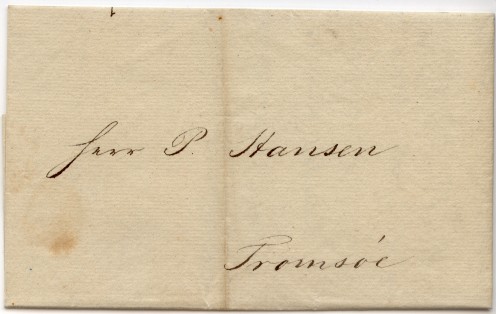 Herr P. Hansen
Tromsóe